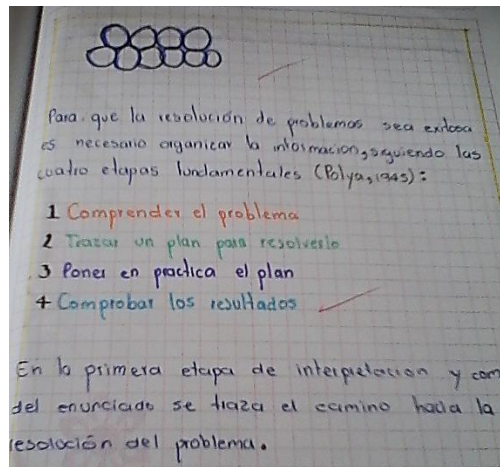 Para que la resolución de problemas sea exitosa
es necesario organizar la información, siguiendo las
cuatro etapas fundamentales (Polya, 1945):
1 Comprender el problema
2 Trazar un plan para resolverlo
3 Poner en practica el plan
4 Comprobar los resultados
En la primera etapa de interpretacion y com
del enunciado se traza el camino hacia la
resolución del problema.